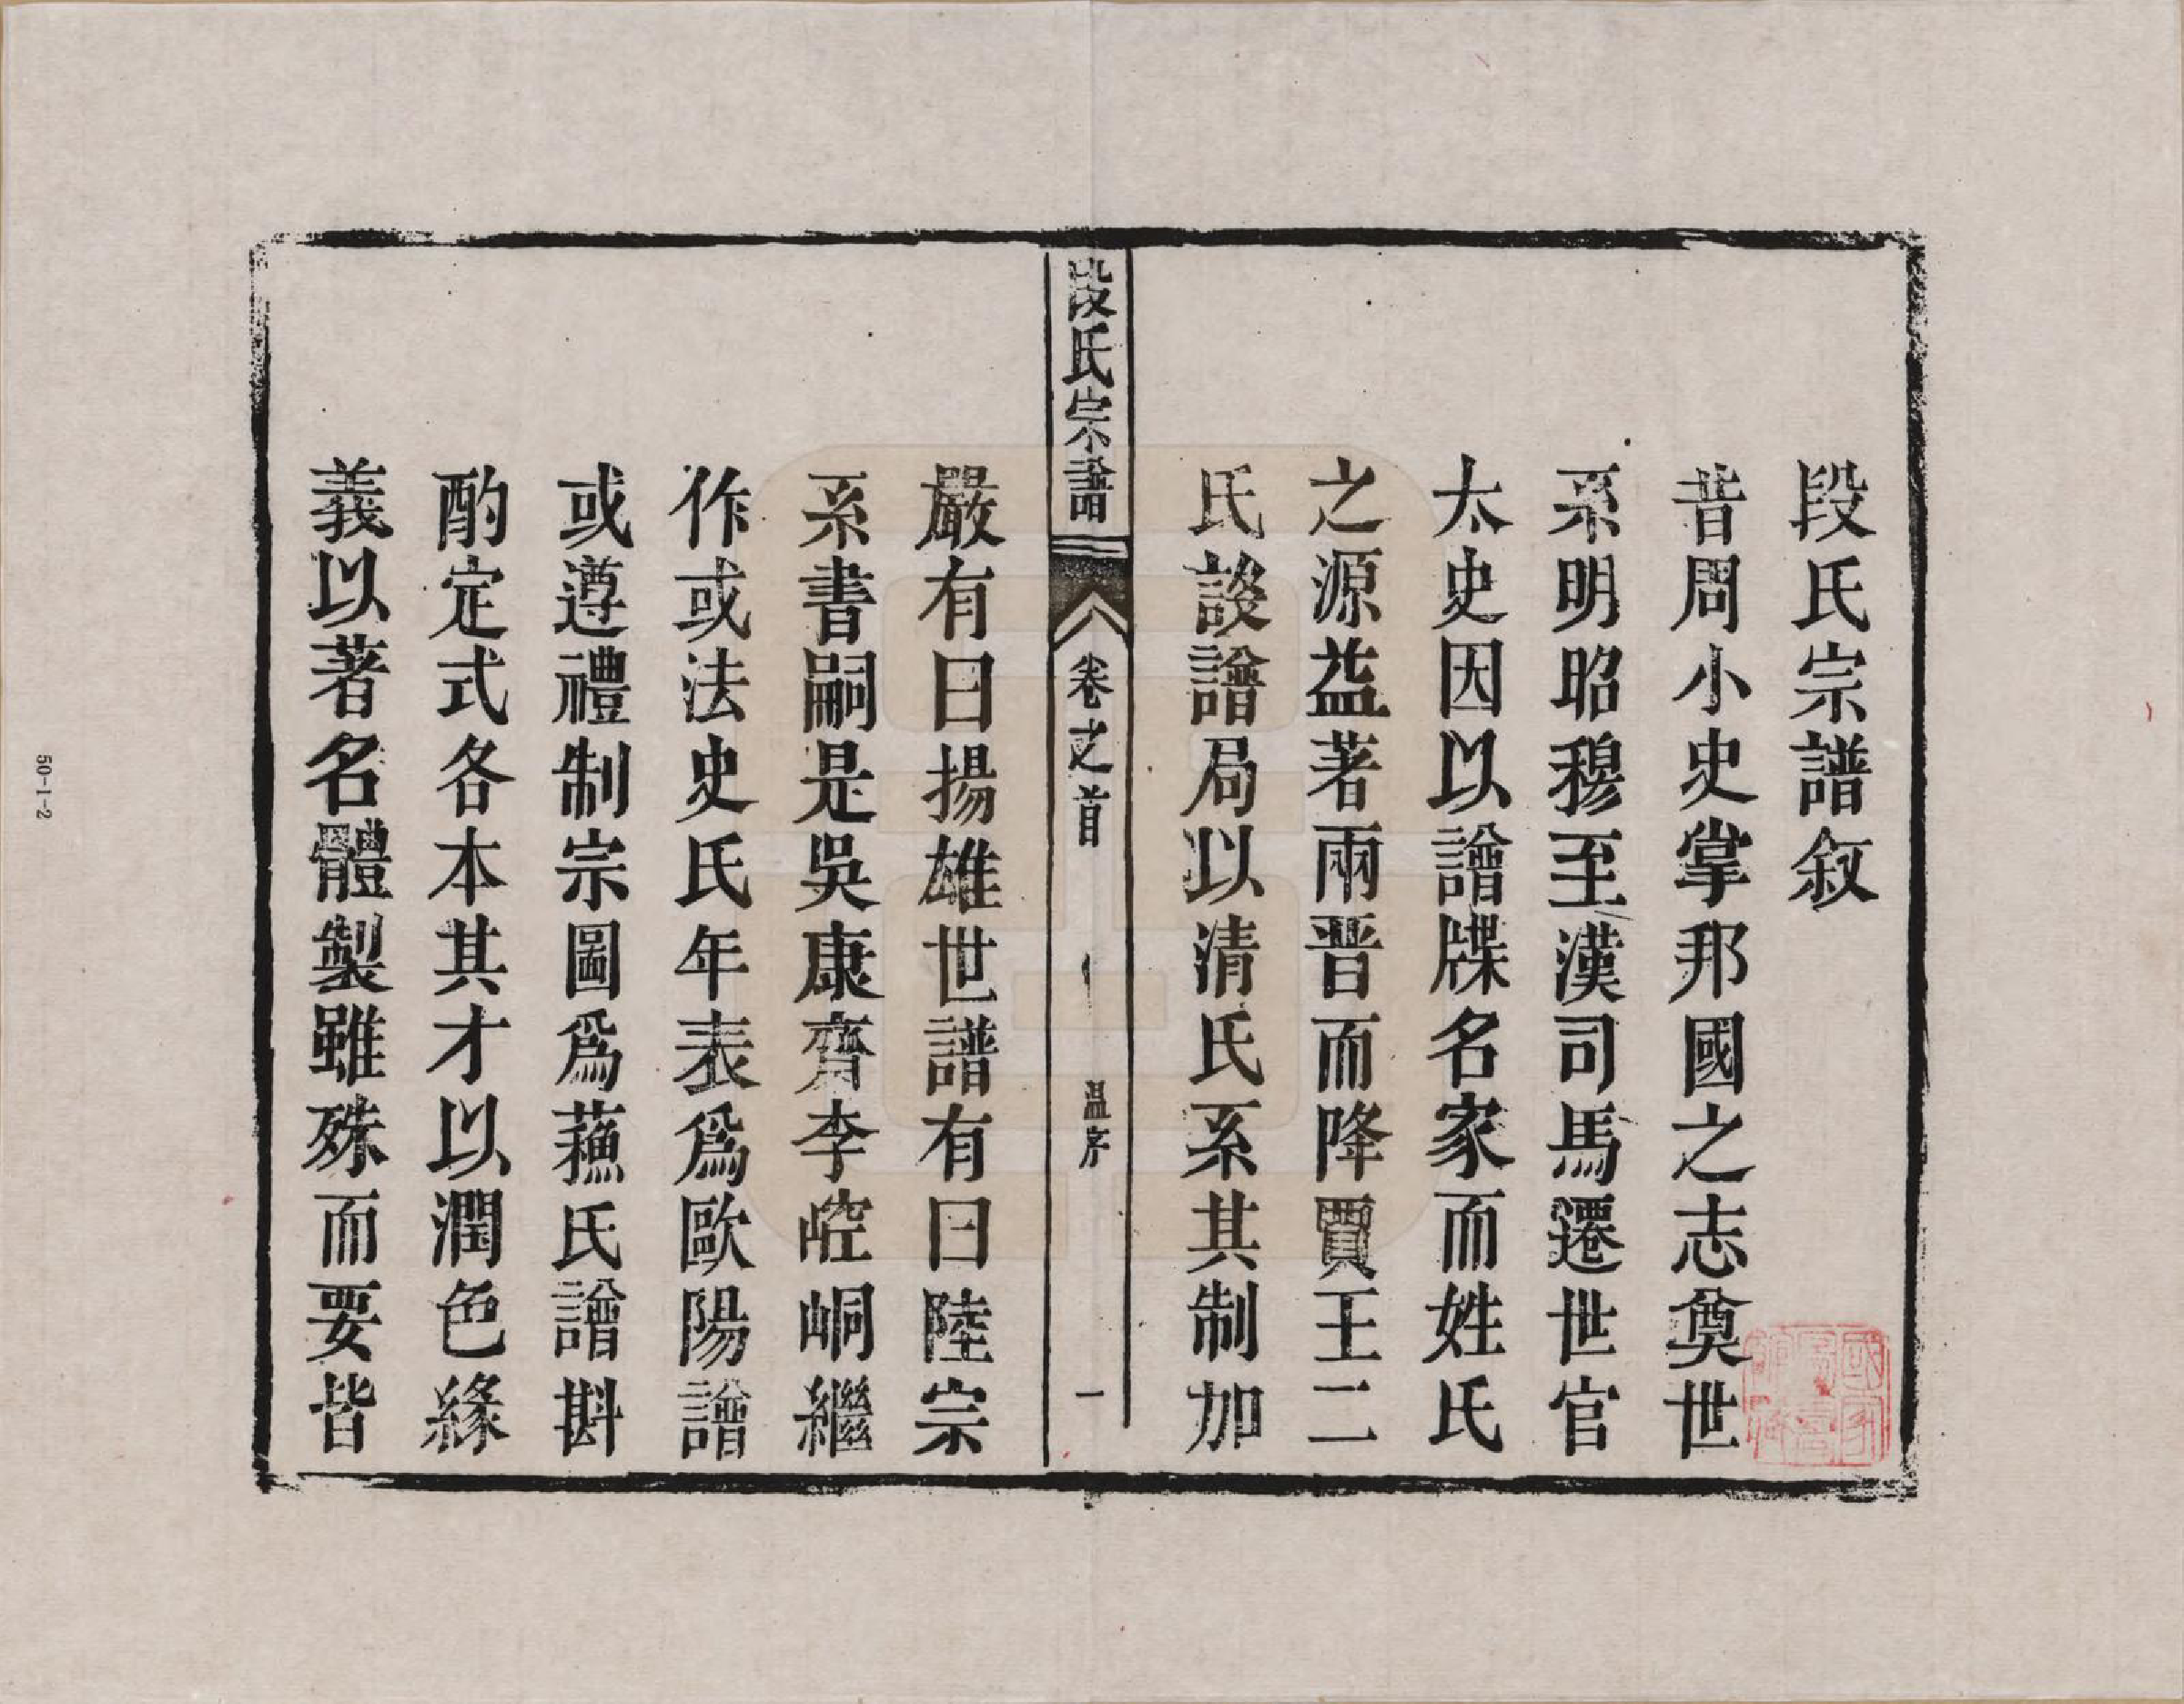 段氏宗譜叙
昔周小史掌邦國之志奠世
系明昭穆至漢司馬遷世官
太史因以譜牒名家而姓氏
之源益著兩晋而降賈王二
氏設譜局以清氏系其制加
段氏宗譜 卷之首 温序 一
嚴有曰揚雄世譜有曰陸宗
系書嗣是吳康齋李崆峒繼
作或法史氏年表爲歐陽譜
或遵禮制宗圖爲蘓氏譜斟
酌定式各本其才以潤色緣
義以著名體製雖殊而要皆
50-1-2